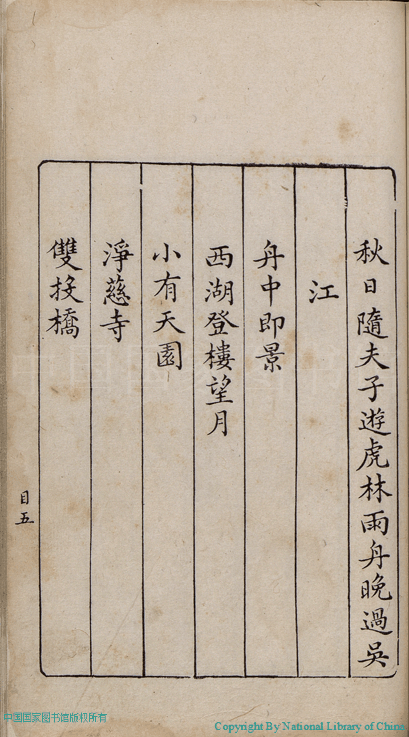 秋日隨夫子遊虎林雨舟晚過吳
江
舟中即景
西湖登樓望月
小有天園
淨慈寺
雙投橋
目五
中国国家图书馆版权所有
Copyright By National Library of China